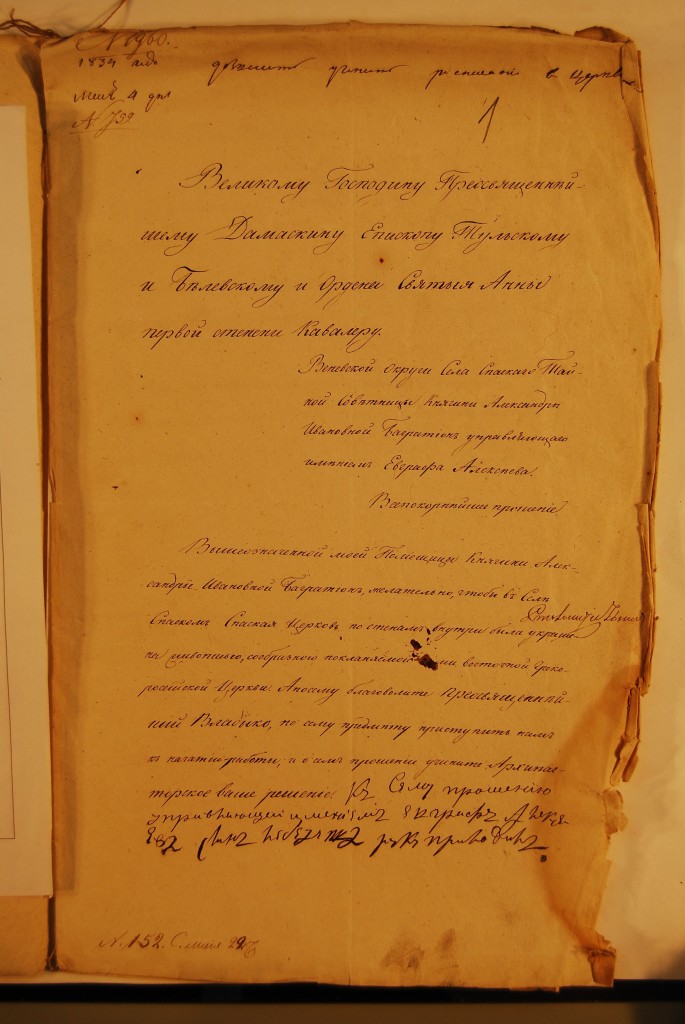 1834 года
Маія 4 дня
№ 759
учинить въ церкв
1
Великому Господину Преосвященнѣй-
шему Дамаскину Епископу Тульскому
и Бѣлевскому и Ордена Святыя Анны
первой степени Кавалеру.
Веневской округи Села Спаскаго Тай-
ной Совѣтницы Княгини Александры
Ивановной Багратіонъ управляющаго
имѣніемъ Евграфа Алексѣева.
Всепокорнѣйшее прошеніе
Вышеозначенной моей Помещице Княгини Алек-
сандрѣ Ивановной Багратіонъ, желательно, чтобы въ Селѣ
Спаскомъ Спаская Церковь по стенамъ внутри была украше
на живописью, сообразною покланяемой восточной Греко-
россійской Церкви: Апосему благоволите Преосвященнѣй-
ный Владыко, по сему предмѣту приступить намъ
къ начатію работы; и о семъ прошеніи учините Архипас-
терское ваше решеніе: Къ Сему прошенію
управляющей имениемъ Евграфъ Алексе-
евъ руку приводилъ
№ 152. Маія 22